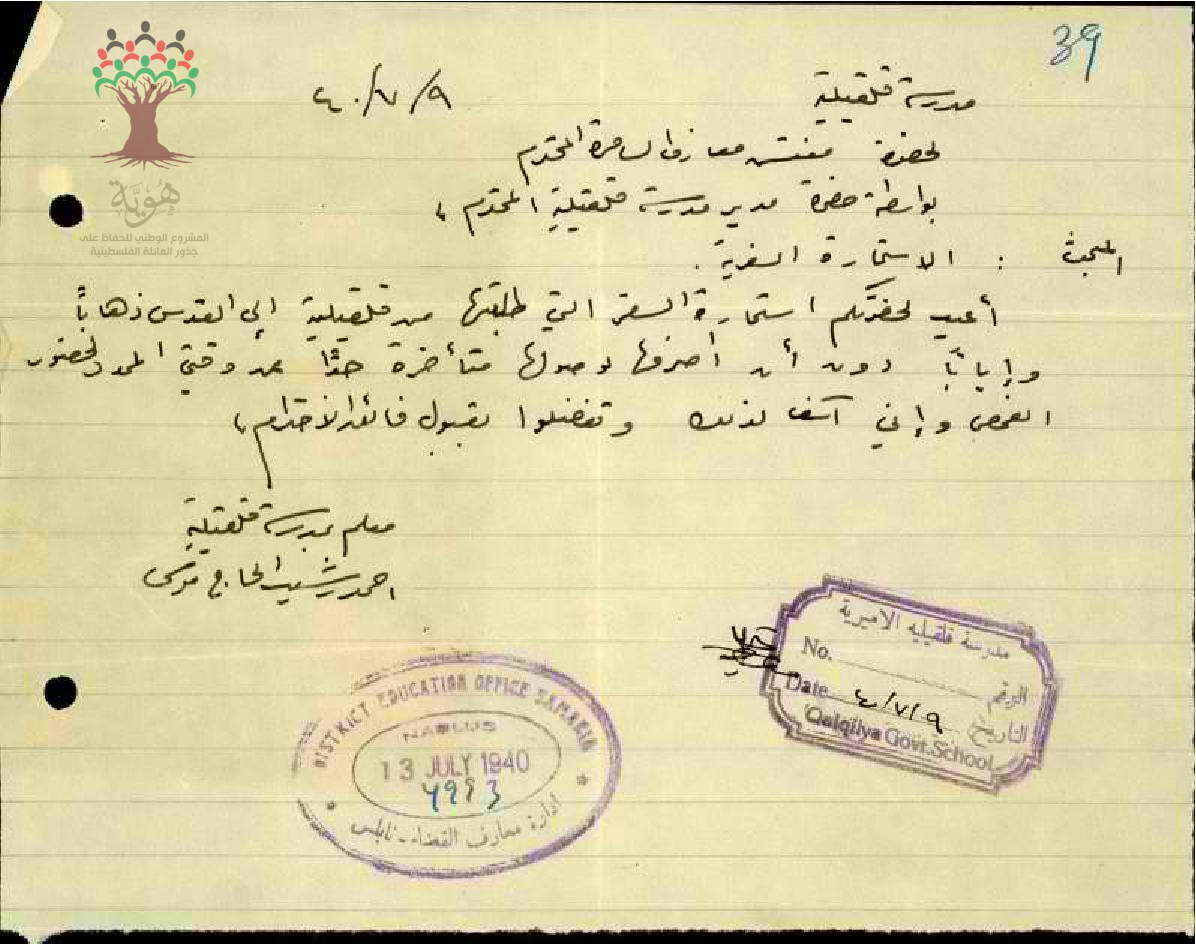 39
مدرسة قلقيلية
٩/٧/٤٠
لحضرة مفتش معارف السامرة المحترم
بواسطة حضرة مدير مدرسة قلقيلية المحترم،
المبحث : الاستمارة السفرية.
أعيد لحضرتكم استمارة السفر التي طلبتها من قلقيلية إلى القدس ذهاباً
وإياباً دون أن أصرفها لوصولها متأخرة جدًا عن وقتي المحدد لحضور
الفحص وإني آسف لذلك وتفضلوا بقبول فائق الاحترام،
معلم بمدرسة قلقيلية
احمد رشيد الحاج موسى
مدرسة قلقيليه الاميرية
No. الرقم
Date ٩/٧/٤٠ التاريخ
Qalqilya Govt. School
DISTRICT EDUCATION OFFICE SAMARIA
NABLUS
13 JULY 1940
ادارة معارف القضاء - نابلس
هُوِيَّة
المشروع الوطني للحفاظ على
جذور العائلة الفلسطينية